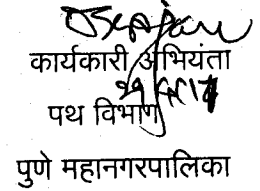 कार्यकारी अभियंता
पथ विभाग
पुणे महानगरपालिका